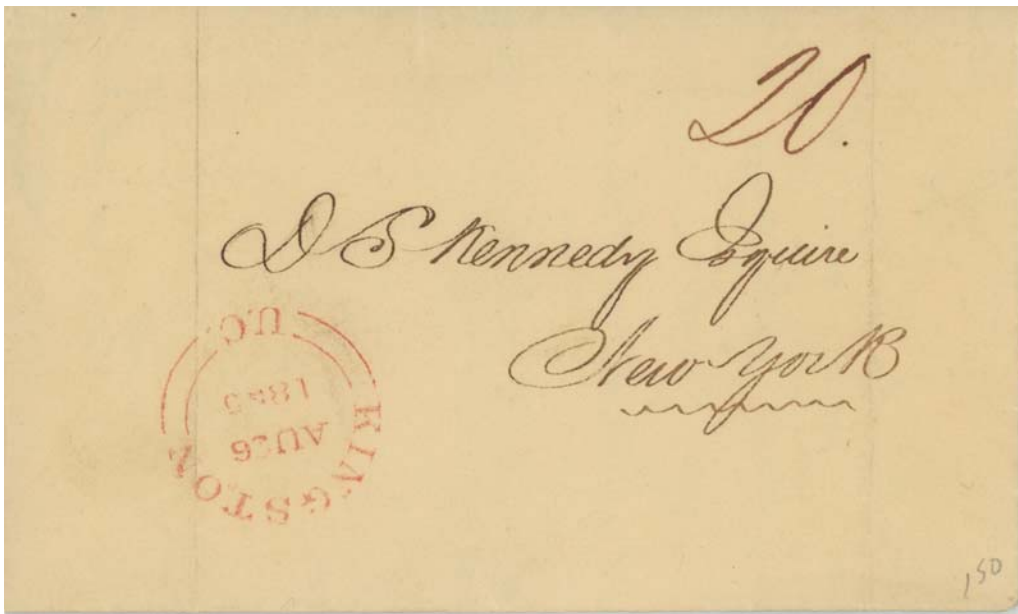 20.
D S Kennedy Esquire
New York
KINGSTON
AU26
U.C.
150